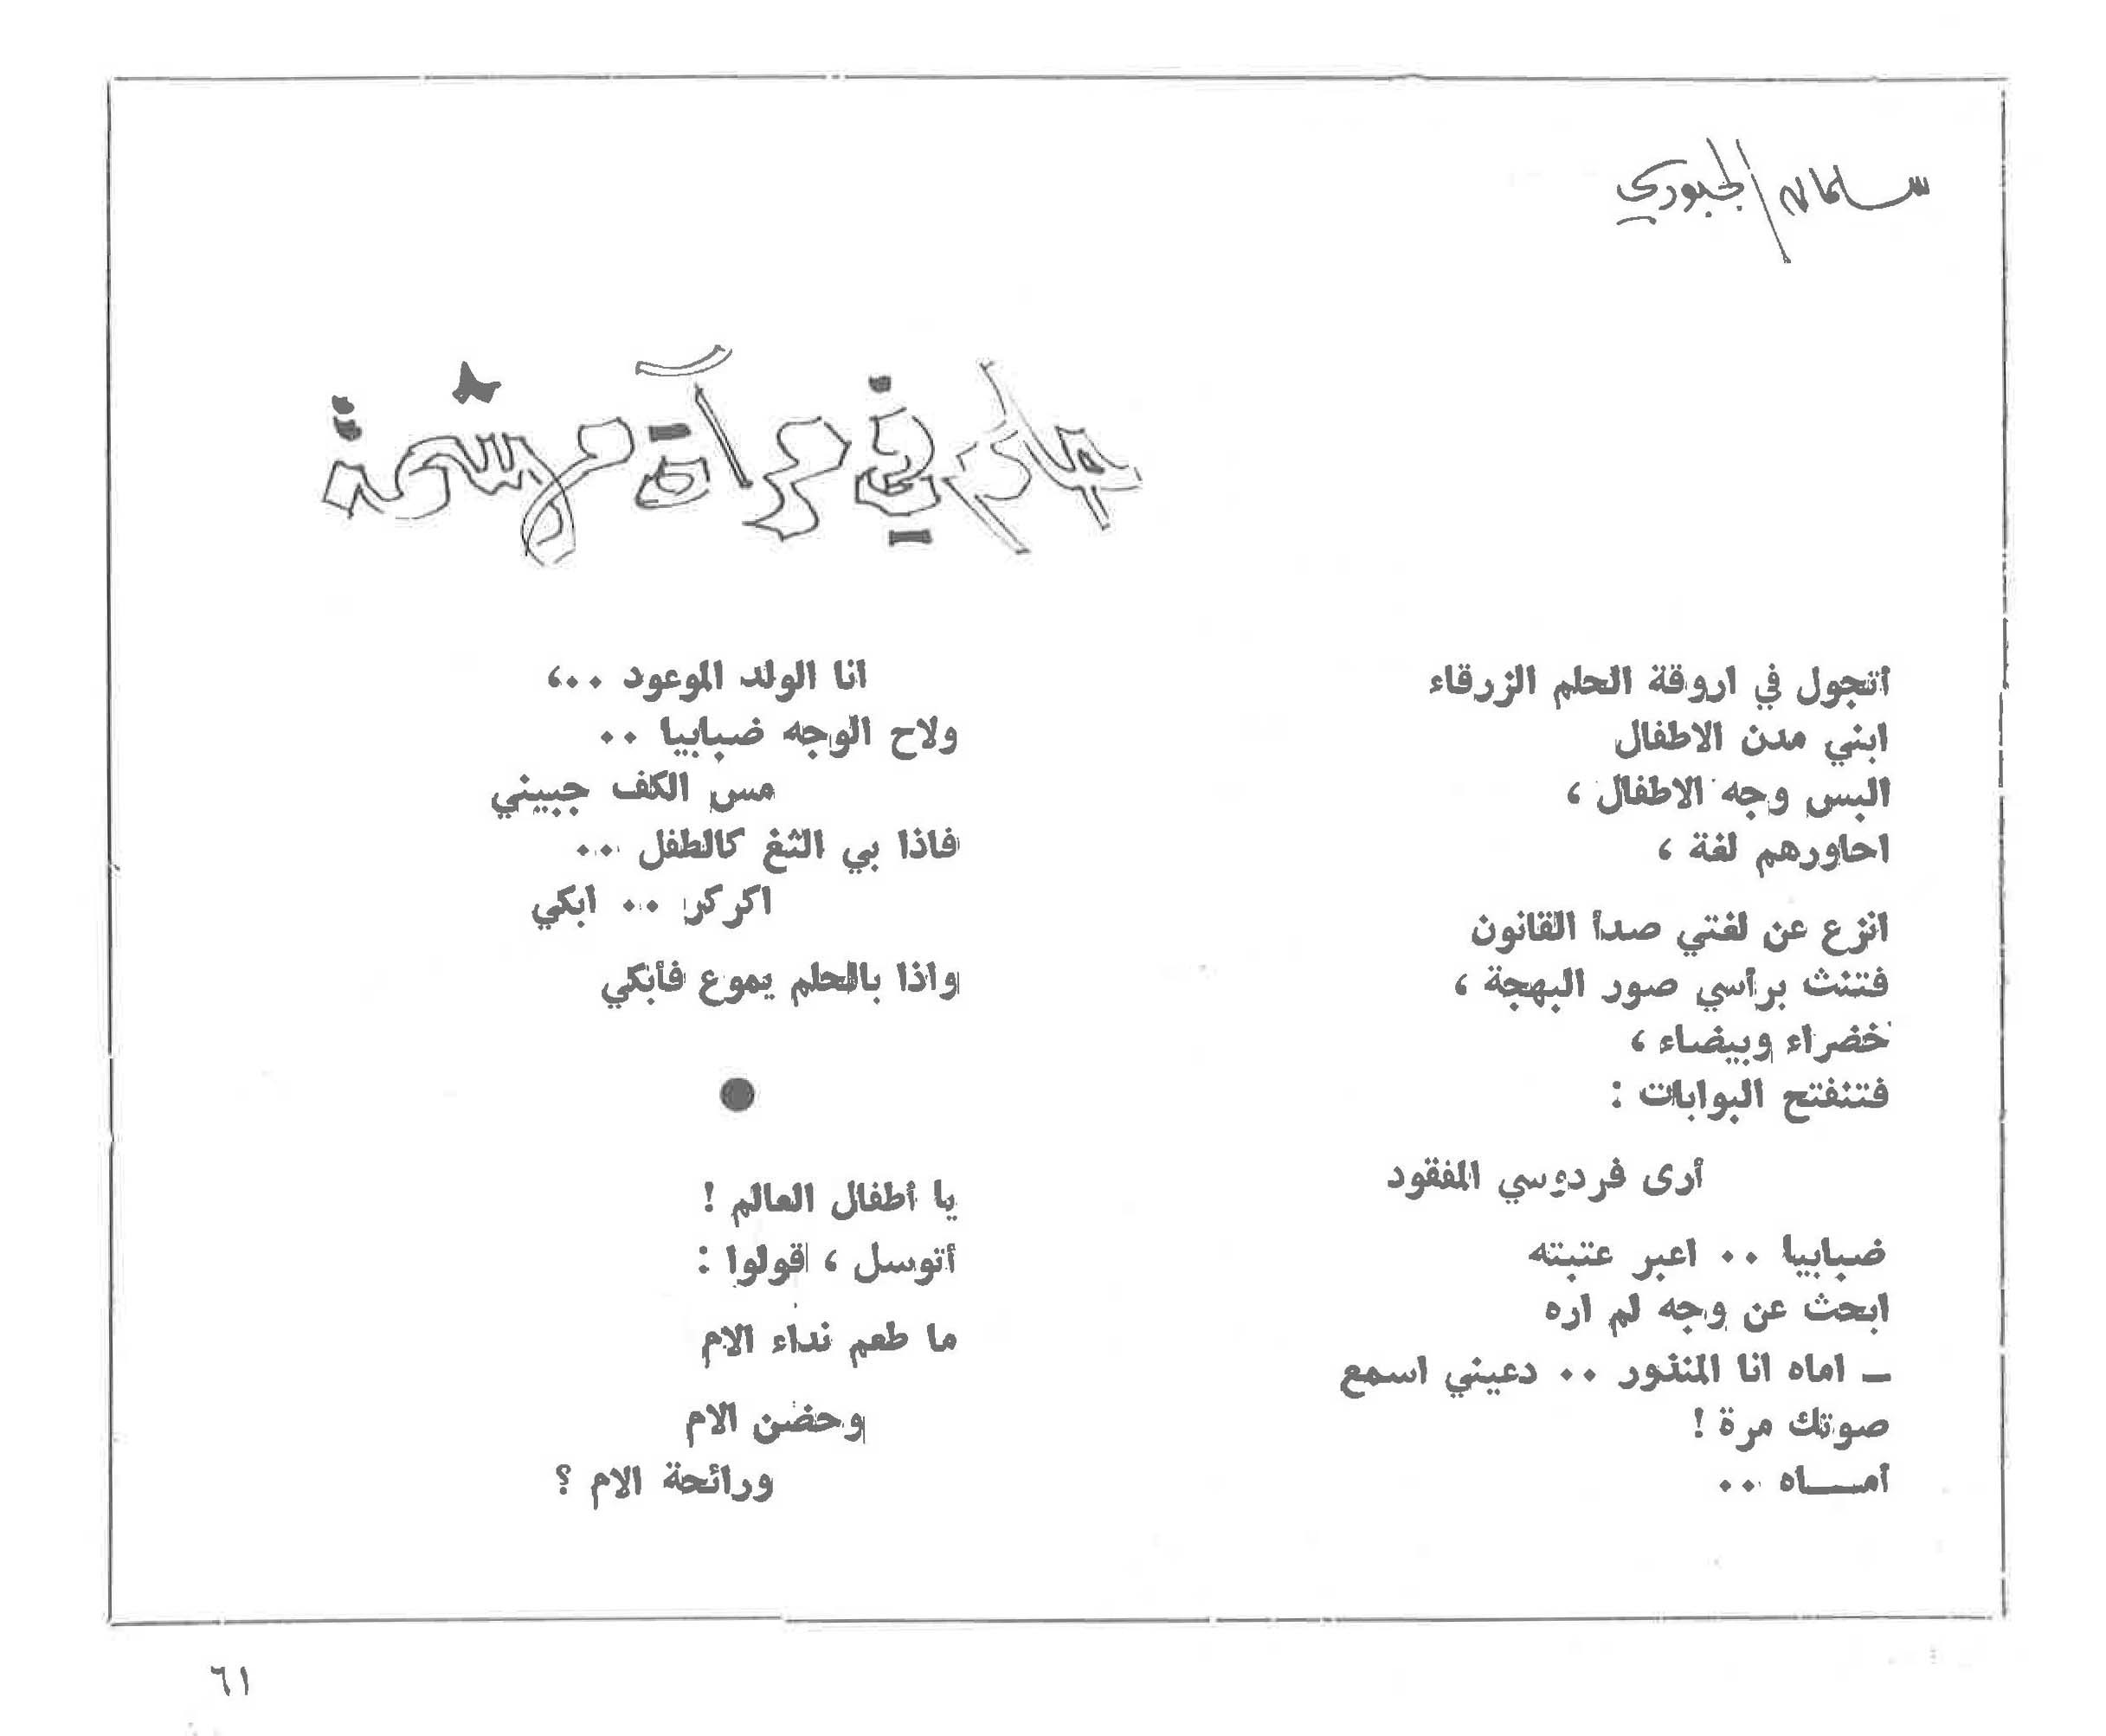 سلمان الجبوري
في مرآة مهشمة
أتجول في اروقة الحلم الزرقاء
ابني مدن الاطفال
البس وجه الاطفال ،
احاورهم لغة ،
انزع عن لغتي صدأ القانون
فتنث برأسي صور البهجة ،
خضراء وبيضاء ،
فتنفتح البوابات :
أرى فردوسي المفقود
ضبابيا ٠٠ اعبر عتبته
ابحث عن وجه لم اره
ـ اماه انا المنذور ٠٠ دعيني اسمع
صوتك مرة !
أمـــاه ٠٠
انا الولد الموعود ٠٠،
ولاح الوجه ضبابيا ٠٠
مس الكف جبيني
فاذا بي الثغ كالطفل ٠٠
اكركر ٠٠ ابكي
واذا بالحلم يموع فأبكي
يا أطفال العالم !
أتوسل ، قولوا :
ما طعم نداء الام
وحضن الام
ورائحة الام ؟
٦١